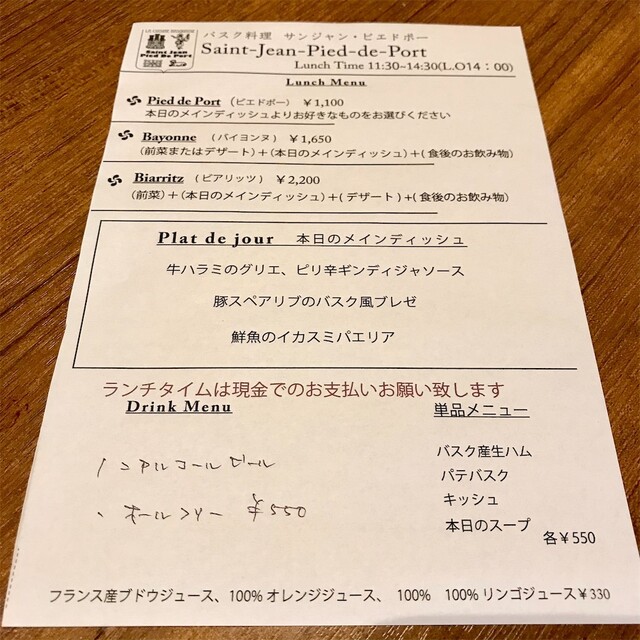 LA CUISINE BASQUAISE
Saint Jean
Pied De Port
バスク料理 サンジャン・ピエドポー
Saint-Jean-Pied-de-Port
Lunch Time 11:30~14:30(L.O14：00)
Lunch Menu
Pied de Port （ピエドポー） ￥1,100
本日のメインディッシュよりお好きなものをお選びください
Bayonne （バイヨンヌ） ￥1,650
（前菜またはデザート）＋（本日のメインディッシュ）＋（食後のお飲み物）
Biarritz （ビアリッツ） ￥2,200
（前菜）＋（本日のメインディッシュ）＋（デザート）＋（食後のお飲み物）
Plat de jour 本日のメインディッシュ
牛ハラミのグリエ、ピリ辛ギンディジャソース
豚スペアリブのバスク風ブレゼ
鮮魚のイカスミパエリア
ランチタイムは現金でのお支払いお願い致します
Drink Menu
ノンアルコールビール
・オールフリー ￥550
単品メニュー
バスク産生ハム
パテバスク
キッシュ
本日のスープ
各￥550
フランス産ブドウジュース、100%オレンジジュース、 100% 100%リンゴジュース￥330